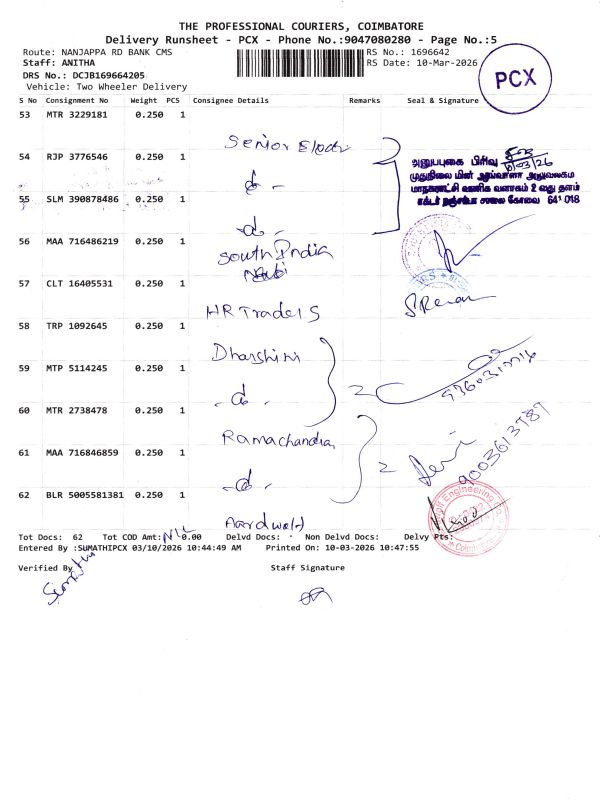 THE PROFESSIONAL COURIERS, COIMBATORE
Delivery Runsheet - PCX - Phone No.:9047080280 - Page No.:5
Route: NANJAPPA RD BANK CMS
RS No.: 1696642
Staff: ANITHA
RS Date: 10-Mar-2026
DRS No.: DCJB169664205
Vehicle: Two Wheeler Delivery
PCX
S No Consignment No Weight PCS Consignee Details Remarks Seal & Signature
53 MTR 3229181 0.250 1
Senior Electr
54 RJP 3776546 0.250 1
அனுப்புகை பிரிவு
10/03/26
முதுநிலை மின் ஆய்வாளர் அலுவலகம்
55 SLM 390878486 0.250 1
மாநகராட்சி வணிக வளாகம் 2 வது தளம்
சாலை கோவை 641 018
-do-
56 MAA 716486219 0.250 1
South India
57 CLT 16405531 0.250 1
HR Traders
58 TRP 1092645 0.250 1
Dharshini
59 MTP 5114245 0.250 1
2
60 MTR 2738478 0.250 1
Ramachandra
61 MAA 716846859 0.250 1
2
9003613787
-do-
62 BLR 5005581381 0.250 1
Engineering
Coimbatore
Aardwold
Tot Docs: 62 Tot COD Amt: NIL 0.00 Delvd Docs: Non Delvd Docs: Delvy Pts:
Entered By :SUMATHIPCX 03/10/2026 10:44:49 AM Printed On: 10-03-2026 10:47:55
Verified By Staff Signature